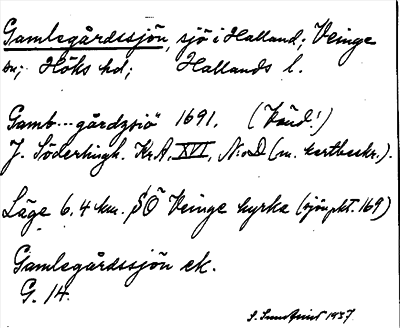 Gamlegårdssjön, sjö i Halland; Veinge
sn; Höks hd; Hallands l.
Gamb...gårdzsiö 1691. (Känd!)
J. Söderlingh. Kr.A. XVI, N:o D (m. kartbeskr.).
Läge 6,4 km. SÖ Veinge kyrka (sjön pkt. 169)
Gamlegårdssjön ek.
G. 14.
S. Sundqvist 1937